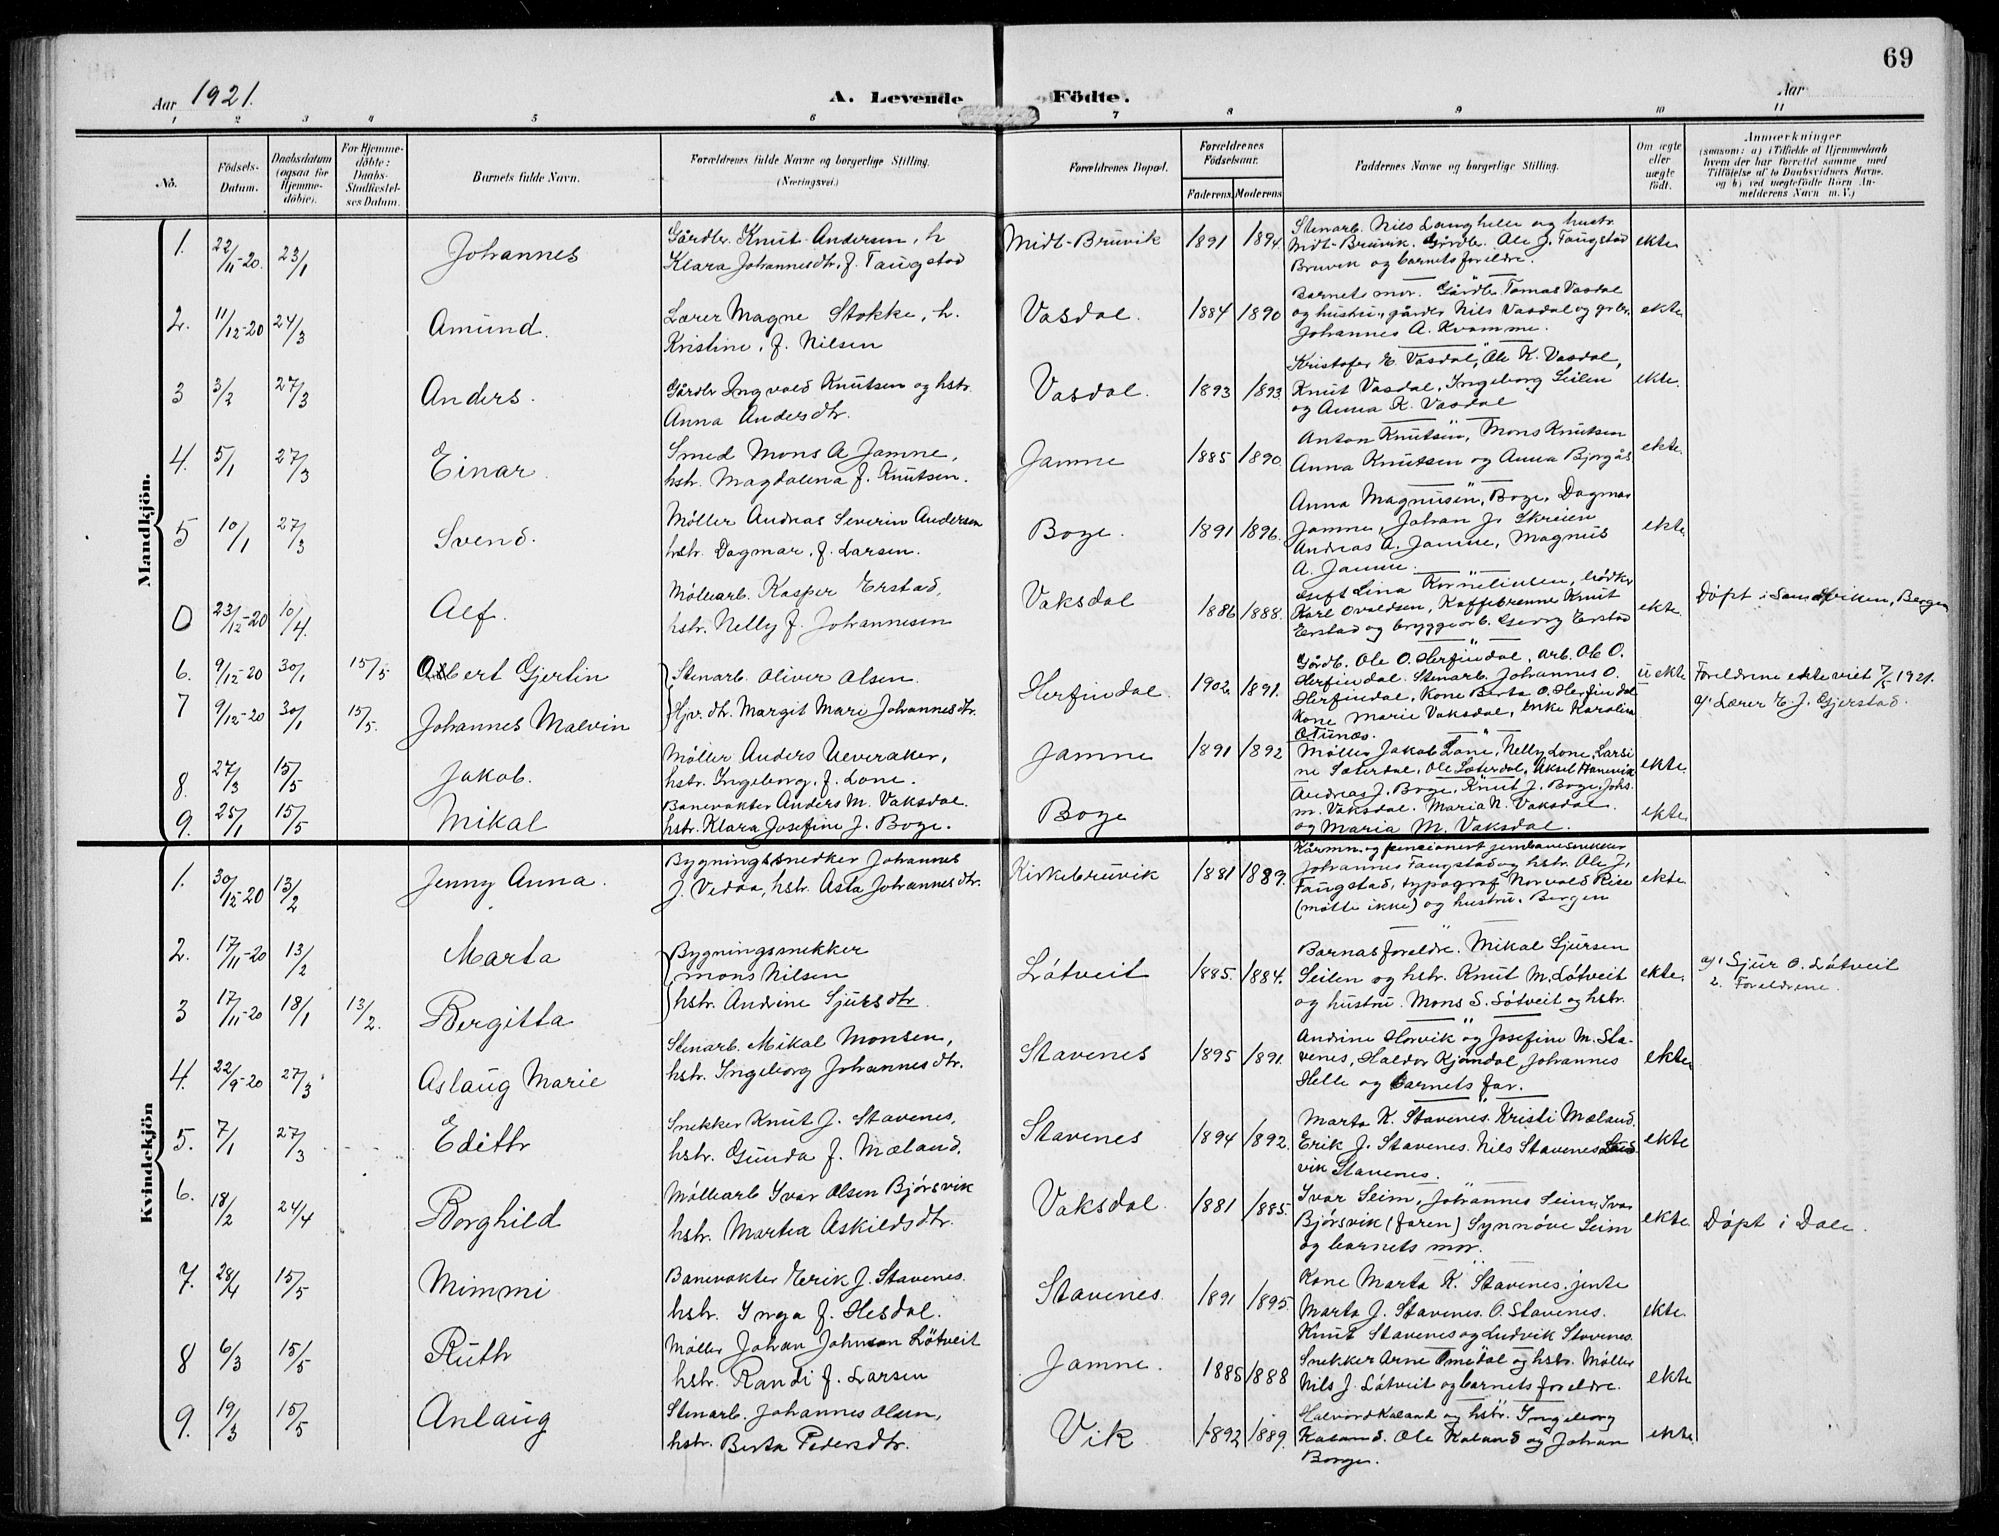 69
Aar 1921.
A. Levende Födte.
Aar
1 2 3 4 5 6 7 8 9 10 11
No.
Födsels-Datum.
Daabsdatum (ogsaa for Hjemmedöbte).
For Hjemmedöbte: Daabs-Stadfæstelses Datum.
Barnets fulde Navn.
Forældrenes fulde Navne og borgerlige Stilling. (Næringsvei.)
Forældrenes Bopæl.
Forældrenes Födselsaar.
Faderens Moderens
Faddernes Navne og borgerlige Stilling.
Om ægte eller uægte födt.
Anmærkninger
(saasom: a) i Tilfælde af Hjemmedaab hvem der har forrettet samme, med Tilföielse af to Daabsvidners Navne, og b) ved uægtefödte Börn Anmelderens Navn m. V.)
Mandkjön.
1. 22/11-20. 23/1 Johannes
Gårdbr. Knut Andersen, h
Klara Johannesdtr. f. Taugstad
Midt-Bruvik 1891 1894.
Stenarb. Nils Langhelle og hustr.
Midt-Bruvik. Gårdbr. Ole J. Taugstad
Bruvik og barnets foreldre.
ekte
2. 11/12-20 24/3 Amund.
Lærer Magne Stokke, h.
Kristine, f. Nilsen
Vasdal. 1884 1890
Barnets mor. Gårdbr. Tomas Vasdal
og hustru, gårdbr Nils Vasdal og grbr.
Johannes A. Kvamme.
ekte
3 3/2 27/3 Anders.
Gårdbr Ingvald Knutsen og hstr.
Anna Andersdtr.
Vasdal. 1893 1893.
Kristofer E. Vasdal, Ole K. Vasdal,
Knut Vasdal, Ingeborg Seilen
og Anna K. Vasdal
ekte.
4. 5/1 27/3 Einar.
Smed Mons A Jamne,
hstr. Magdalena f. Knutsen.
Jamne 1885 1890.
Anton Knutsen, Mons Knutsen
Anna Knutsen og Anna Bjorgås
ekte.
5 10/1 27/3 Svend.
Møller Andreas Severin Andersen
hstr. Dagmar, f. Larsen.
Boge. 1891 1896.
Anna Magnusen, Boge, Dagmar
Jamne, Johan J. Skreien
Andreas A. Jamne, Magnus
A. Jamne.
ekte.
0 23/12-20 10/4 Alf.
Møllearb. Kasper Erstad,
hstr. Nelly f. Johannesen
Vaksdal 1886 1888.
Gift Lina Korneliusen, bødker
Karl Ovaldsen, Kaffebrenne Knut
Erstad og bryggearb. Georg Erstad
ekte.
Døpt i Sandviken, Bergen
6. 9/12-20 30/1 15/5 Osbert Gjertin
Stenarb. Oliver Olsen.
7 9/12-20 30/1 15/5. Johannes Malvin
Hjv. dtr. Margit Marie Johannesdtr.
Herfindal. 1902. 1891.
Gårdb. Ole O. Herfindal, arb. Ole O.
Herfindal. Stenarb. Johannes O.
Herfindal, Kone Berta O. Herfindal
Kone Marie Vaksdal, enke Karolina
Otunes.
uekte
Foreldrene ekteviet 7/5 1921.
a) Lærer E. J. Gjerstad.
8. 27/3 15/5 Jakob.
Møller Anders Ueveraker,
hstr. Ingeborg, f. Lone.
Jamne 1891 1892
Møller Jakob Lone, Nelly Lone, Larsi
ne Sæterdal, Ole Sæterdal, Aksel Hanevik
ekte.
9. 25/1 15/5 Mikal
Banevakter Anders M. Vaksdal.
hstr. Klara Josefine J. Boge.
Boge
Andreas J. Boge, Knut J. Boge, Johs.
M. Vaksdal. Maria N. Vaksdal.
og Maria M. Vaksdal.
ekte.
Kvindekjön
1. 30/12-20 13/2 Jenny Anna.
Bygningssnedker Johannes
J. Vedaa, hstr. Asta Johannesdtr.
Kirkebruvik 1881 1889.
Kårmn. og pensionert jernbanesnekker
Johannes Taugstad og hstr. Ole J.
Taugstad, typograf Norvald Rise
(møtte ikke) og hustru. Bergen
ekte.
2. 17/11-20 13/2 Marta
Bygningssnekker
Mons Nilsen
3 17/11-20 18/1 13/2. Bergitta
hstr. Andrine Sjursdtr.
Låtveit 1885. 1884.
Barnas foreldre. Mikal Sjursen
Seilen og hstr. Knut M. Låtveit
og hustru. Mons S. Låtveit og hstr.
ekte.
a) 1 Sjur O. Låtveit
2. Foreldrene.
4. 22/9-20 27/3 Aslaug Marie
Stenarb. Mikal Monsen,
hstr. Ingeborg Johannesdtr.
Stavenes 1895 1891.
Andrine Horvik og Josefine M. Sta-
venes, Haldor Kjøndal, Johannes
Helle og barnets far.
ekte
5. 7/1 27/3 Edith
Snekker Knut J. Stavenes,
hstr. Gunda f. Mæland.
Stavenes 1894 1892.
Marta K. Stavenes. Kristi Mæland.
Erik J. Stavenes. Nils Stavenes Lud
vik Stavenes.
ekte
6. 18/2 24/4 Borghild
Møllearb Ivar Olsen Bjørsvik
hstr. Martha Askildsdtr.
Vaksdal. 1881 1885.
Ivar Seim, Johannes Seim, Ivar
Bjørsvik (faren) Synnøve Seim
og barnets mor.
ekte.
Døpt i Dale.
7. 28/4 15/5 Mimmi
Banevakter Erik J. Stavenes.
hstr. Inga f. Hesdal.
Stavenes. 1891 1895.
Kone Marta K. Stavenes. jente
Marta J. Stavenes. O. Stavenes.
Knut Stavenes og Ludvik Stavenes.
ekte.
8 6/3 15/5 Ruth
Møller Johan Johnsen Låtveit
hstr. Randi f. Larsen
Jamne. 1885 1888
Snekker Arne Omdal og hstr. Møller
Nils J. Låtveit og barnets foreldre.
ekte.
9. 19/3 15/5 Anlaug
Stenarb. Johannes Olsen,
hstr. Berta Pedersdtr.
Vik 1892 1889.
Halvord Kaland og hstr. Ingeborg
Kaland. Ole Kaland og Johan
Borge.
ekte.